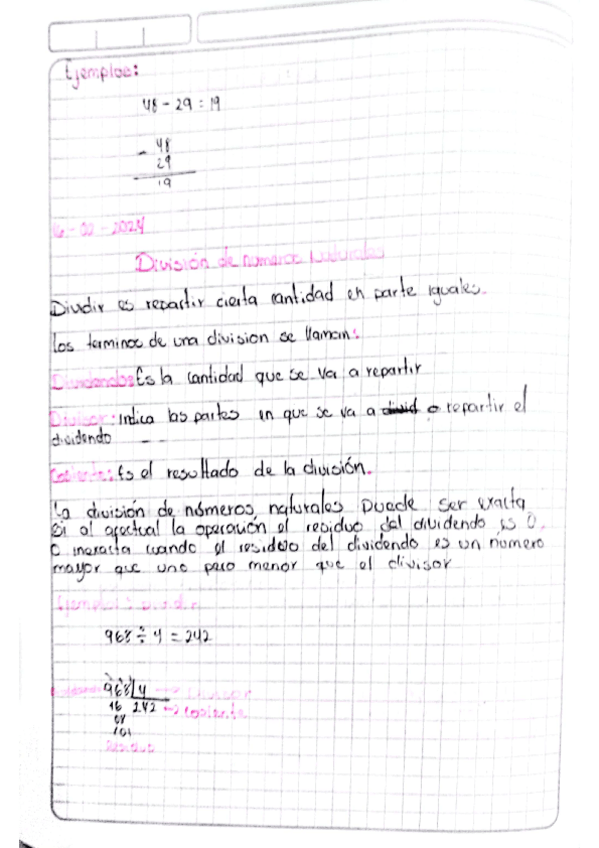 Ejemplos:
48 - 29 = 19
- 48
29
19
16-02-2024
División de numeros naturales
Dividir es repartir cierta cantidad en parte iguales.
los terminos de una division se llaman:
Dividendo: Es la cantidad que se va a repartir
Divisor: Indica las partes en que se va a divid o repartir el
dividendo
Cociente: Es el resultado de la división.
la división de números naturales puede ser exacta
si al efectual la operación el residuo del dividendo es 0.
O inexacta cuando el residuo del dividendo es un número
mayor que uno pero menor que el divisor
968 ÷ 4 = 242
968 4 → Divisor
16 242 → cociente
08
Residuo